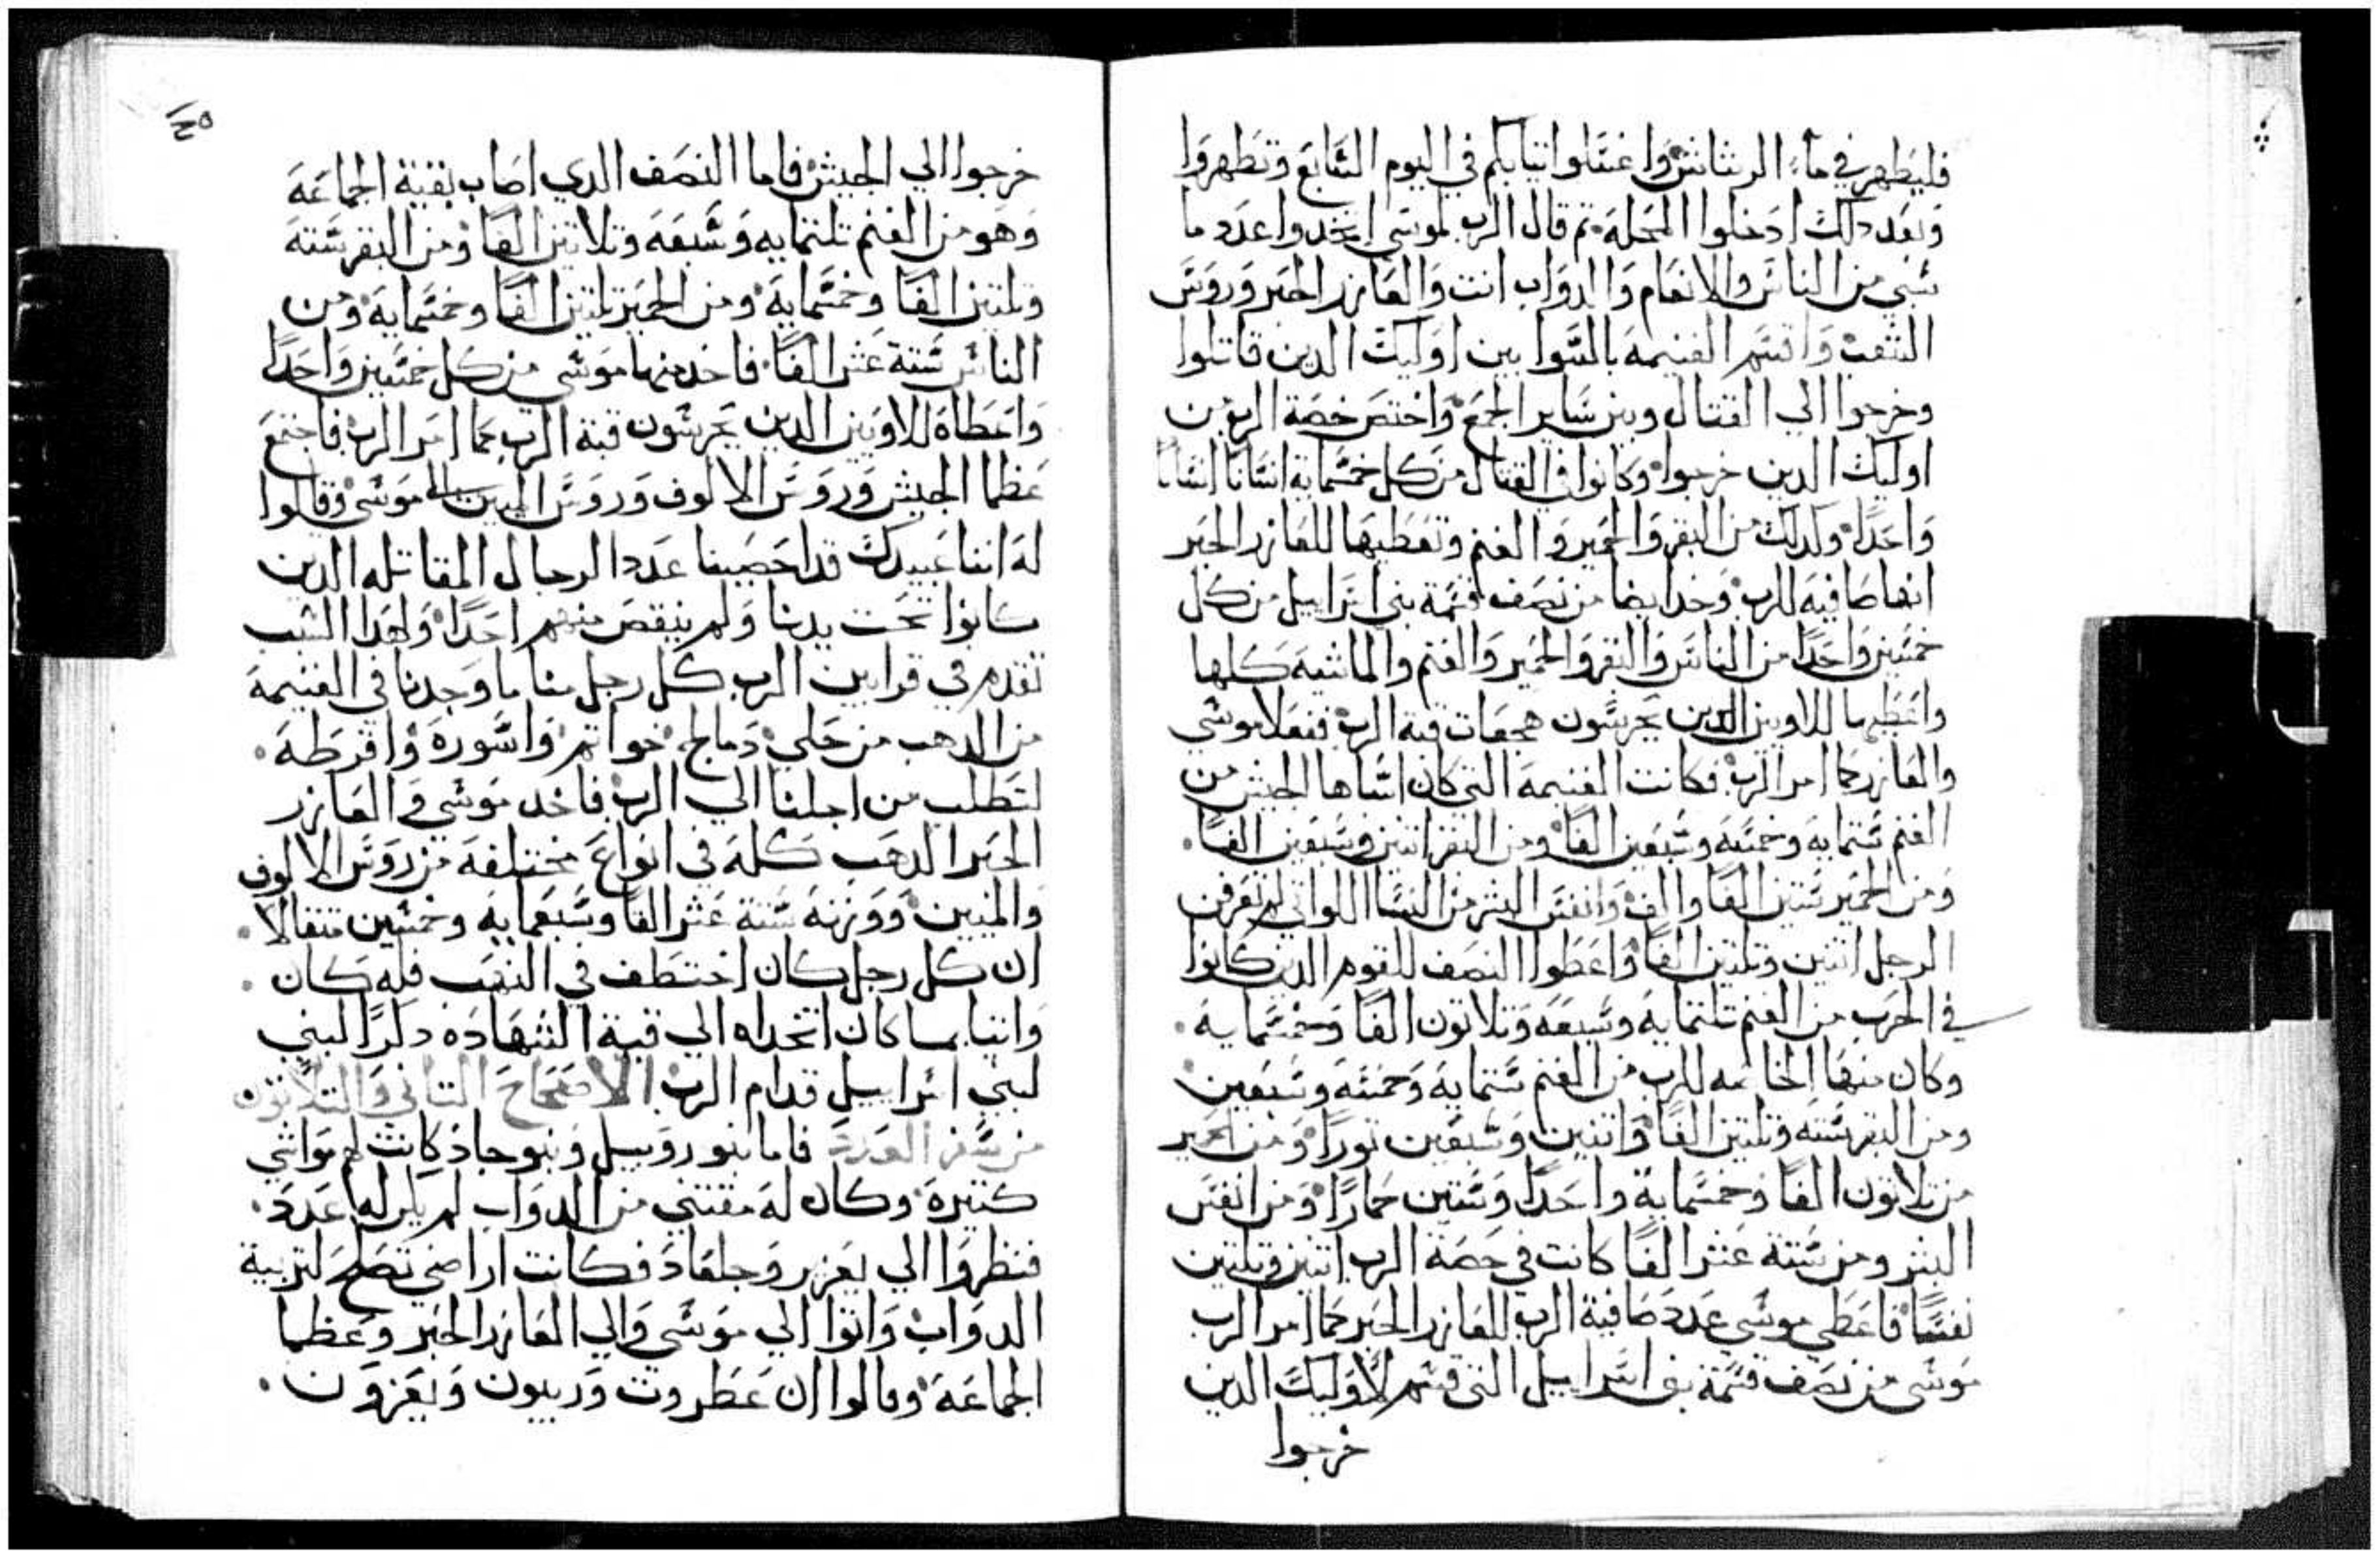 فليطهر في ماء الرشاش واغسلوا اتيابكم في اليوم السابع وتطهروا
وبعد دلك ادخلوا المحلة ثم قال الرب لموسي اتخدوا عدد ما
سبي من الناس والانعام والدواب انت والعازر الحبر وروس
الشعب واقسم الغنيمة بالسوا بين اوليك الدين قاتلوا
وخرجوا الي القتال وبين ساير الجمع واختص خصة الرب من
اوليك الدين خرجوا وكانوا في القتال من كل خمسماية انسانا انسانا
واحدا وكدلك من البقر والحمير والغنم وتعطيها للعازر الحبر
انها صافيه للرب وخد ايضا من نصف قسمة بني اسراييل من كل
خمسين واحدا من الناس والبقر والحمير والغنم والماشيه كلها
واعطيها للاويين الدين يحرسون هجعات قبة الرب ففعلا موسي
والعازر كما امر الرب فكانت الغنيمة التي كان اساها الجيش من
الغنم ستماية وخمسة وسبعين الفا ومن البقر اتنين وسبعين الفا
ومن الحمير ستين الفا والف وانفس البشر من النسا اللواتي لم تعرفن
الرجل اتنين وتلتين الفا واعطوا النصف للقوم الدين كانوا
في الحرب من الغنم تلتماية وسبعة وتلاتون الفا وخمسماية
وكان منها الخاصه للرب من الغنم ستماية وخمسة وسبعين
ومن البقر سته وتلتين الفا واتنين وسبعين تورا ومن الحمير
من تلاتون الفا وخمسماية واحدا وستين حمارا ومن انفس
البشر ومن ستة عشر الفا كانت في حصة الرب اتنين وتلتين
نفسا فاعطي موسي عدد صافية الرب للعازر الحبر كما امر الرب
موسي من نصف قسمة بني اسراييل التي قسم لاوليك الدين
خرجوا
١٤٥
خرجوا الي الجيش فاما النصف الدي اصاب بقية الجماعة
وهو من الغنم تلتمايه وسبعة وتلاتين الفا ومن البقر ستة
وتلتين الفا وخمسماية ومن الحمير تلتين الفا وخمسماية ومن
الناس ستة عشر الفا فاخد منها موسي من كل خمسين واحدا
واعطاه للاويين الدين يحرسون قبة الرب كما امر الرب فاجتمع
عظما الجيش وروس الالوف وروس الميين الي موسي وقالوا
له اننا عبيدك قد احصينا عدد الرجال المقاتله الدين
كانوا تحت يدنا ولم ينقص منهم احدا ولهدا السبب
نقدم في قرابين الرب كل رجل منا ما وجدنا في الغنيمة
من الدهب من حلي دمالج خواتم واسورة واقرطة
لتطلب من اجلنا الي الرب فاخد موسي والعازر
الحبر الدهب كله في انواع مختلفة من روس الالوف
والميين ووزنه ستة عشر الفا وسبعماية وخمسين متقالا
ان كل رجل كان اختطف في النهب فله كان
واتيا بما كان اتخداه الي قبة الشهادة دكرا لبني
لبني اسراييل قدام الرب الاصحاح التاني والتلاتون
من سفر العدد فاما بنو روبيل وبنو جاد كانت لهم مواشي
كتيرة وكان له مقتني من الدواب لم يكن لها عدد
فنظروا الي يعزير وجلعاد فكانت اراضي تصلح لتربية
الدواب واتوا الي موسي والي العازر الحبر وعظما
الجماعة وقالوا ان عطروت وديبون ويعزون